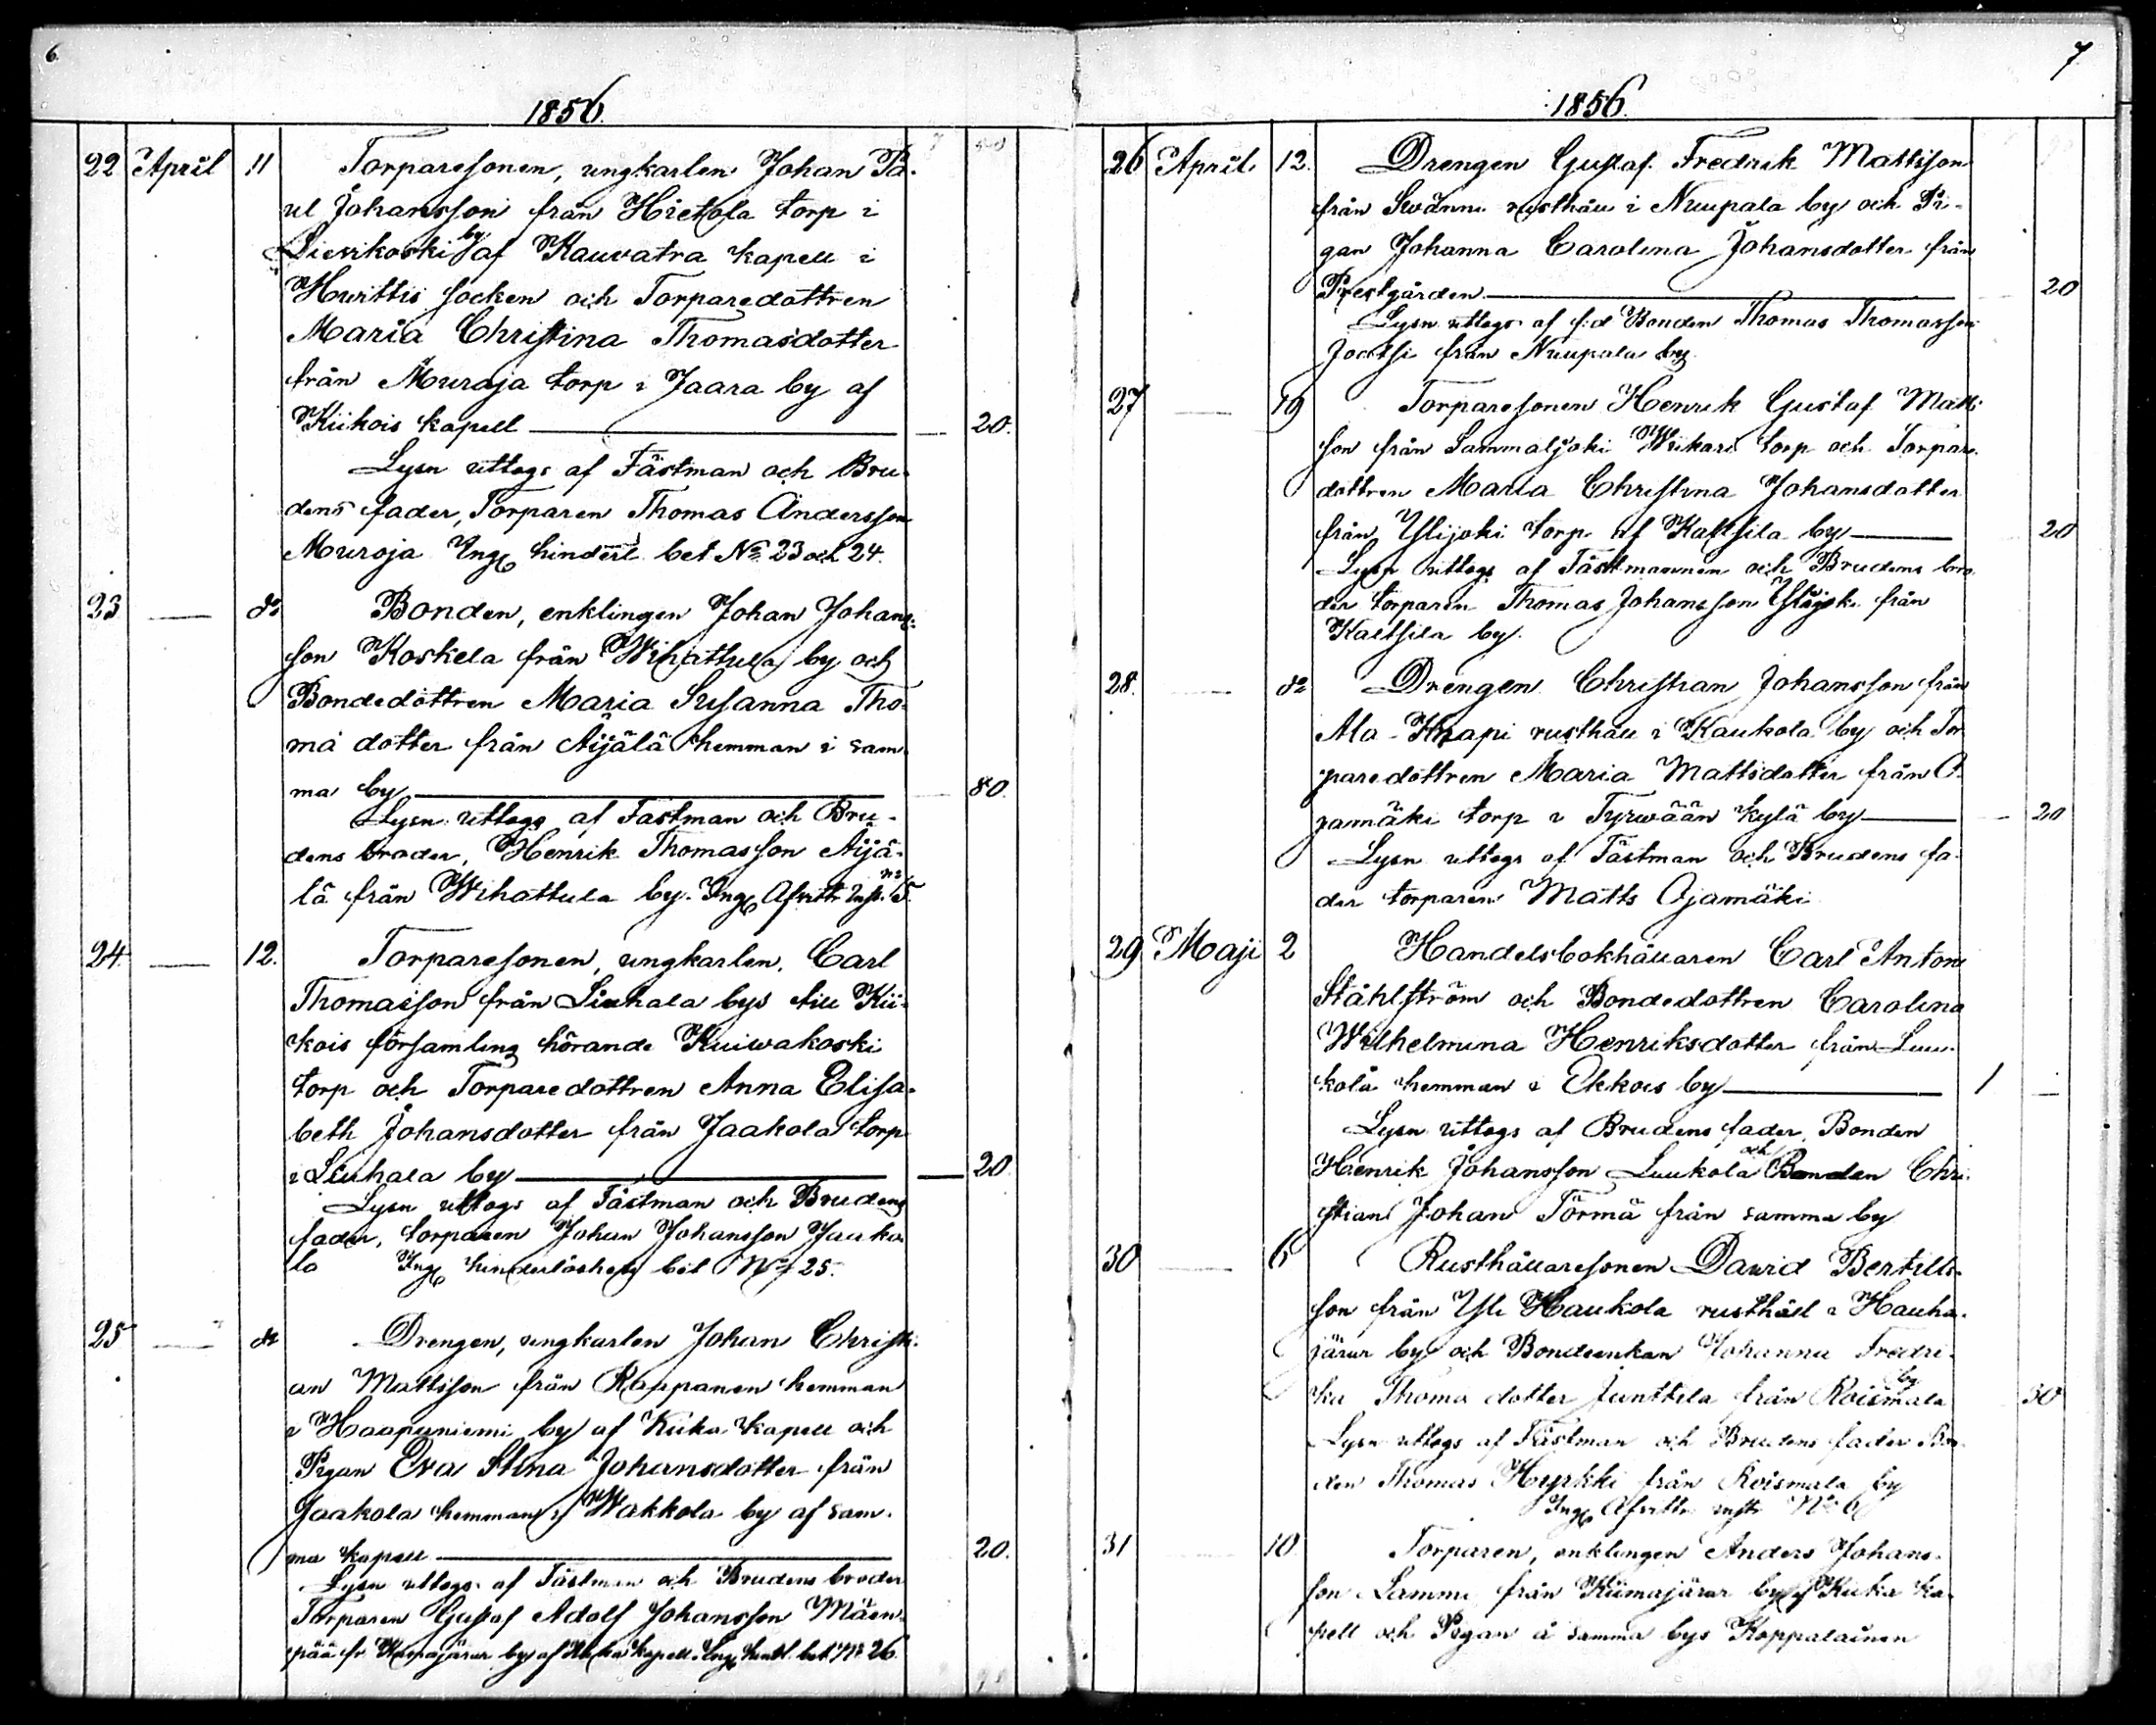 6.
1856.
22 April 11 Torparesonen, ungkarlen Johan Pa-
ul Johansson från Hietola torp i
Sievikoski by af Kauvatra kapell i
Huittis socken och Torparedottren
Maria Christina Thomasdotter
från Muroja torp i Jaara by af
Kiikois kapell — 20.
Lysn uttogs af Fästman och Bru-
dens fader, Torparen Thomas Andersson
Muroja Ing hinderl bet No 23 och 24.
23 — do Bonden, enklingen Johan Johans-
son Koskela från Wihattula by och
Bondedottren Maria Susanna Tho-
mä dotter från Äijälä hemman i sam-
ma by — 80.
Lysn uttogs af Fästman och Bru-
dens broder, Henrik Thomasson Äijä-
lä från Wihattula by. Ing Afvittr Inst. no 5.
24. — 12. Torparesonen, ungkarlen, Carl
Thomasson från Liuhala bys till Kii-
kois församling hörande Kuiwakoski
torp och Torparedottren Anna Elisa-
beth Johansdotter från Jaakola torp
i Liuhala by — 20
Lysn uttogs af Fästman och Brudens
fader, torparen Johan Johansson Jaako-
la Ing hinderlöshets bet No 25.
25 — do Drengen, ungkarlen Johan Christi-
an Mattsson från Rappanen hemman
i Haapaniemi by af Kiika kapell och
Pigan Eva Stina Johansdotter från
Jaakola hemman i Wakkola by af sam-
ma kapell — 20.
Lysn uttogs af Fästman och Brudens broder
Torparen Gustaf Adolf Johansson Mäen-
pää fr Kiimajärvi by af Kiika kapell. Ing hindl. bet No 26.
7
1856.
26 April 12. Drengen Gustaf Fredrik Mattsson
från Swänni rusthåll i Nuupala by och Pi-
gan Johanna Carolina Johansdotter från
Prestgården — 20
Lysn uttogs af f:d Bonden Thomas Thomasson
från Nuupala by.
27 — 19 Torparesonen Henrik Gustaf Matts-
son från Sammaljoki Wiikari torp och Torpare-
dottren Maria Christina Johansdotter
från Ylijoki torp af Kaltsila by — 20
Lysn uttogs af Fästmannen och Brudens bro-
der torparen Thomas Johansson Ylijoki från
Kaltsila by.
28. — do Drengen Christian Johansson från
Ala-Knapi rusthåll i Kaukola by och Tor-
paredottren Maria Mattsdotter från O-
jamäki torp i Tyrwään kylä by — 20
Lysn uttogs af Fästman och Brudens fa-
der torparen Matts Ojamäki
29 Maji 2 Handelsbokhållaren Carl Anton
Ståhlström och Bondedottren Carolina
Wilhelmina Henriksdotter från Luu-
kola hemman i Ekkois by — 1 —
Lysn uttogs af Brudens fader, Bonden
Henrik Johansson Luukola och Bonden Chri-
stian Johan Törmä från samma by
30 — 6 Rusthållaresonen David Bertils-
son från Yli Haukola rusthåll i Houha-
järvi by och Bondeenkan Johanna Fredri-
ka Thomä dotter Junttila från Roismala by 50
Lysn uttogs af Fästman och Brudens fader Bon-
den Thomas Hyrkki från Roismala by
Ing Afvittr instr No 6
31 10 Torparen, enklingen Anders Johans-
son Lammi från Kiimajärvi by af Kiika ka-
pell och Pigan å samma bys Koppalainen